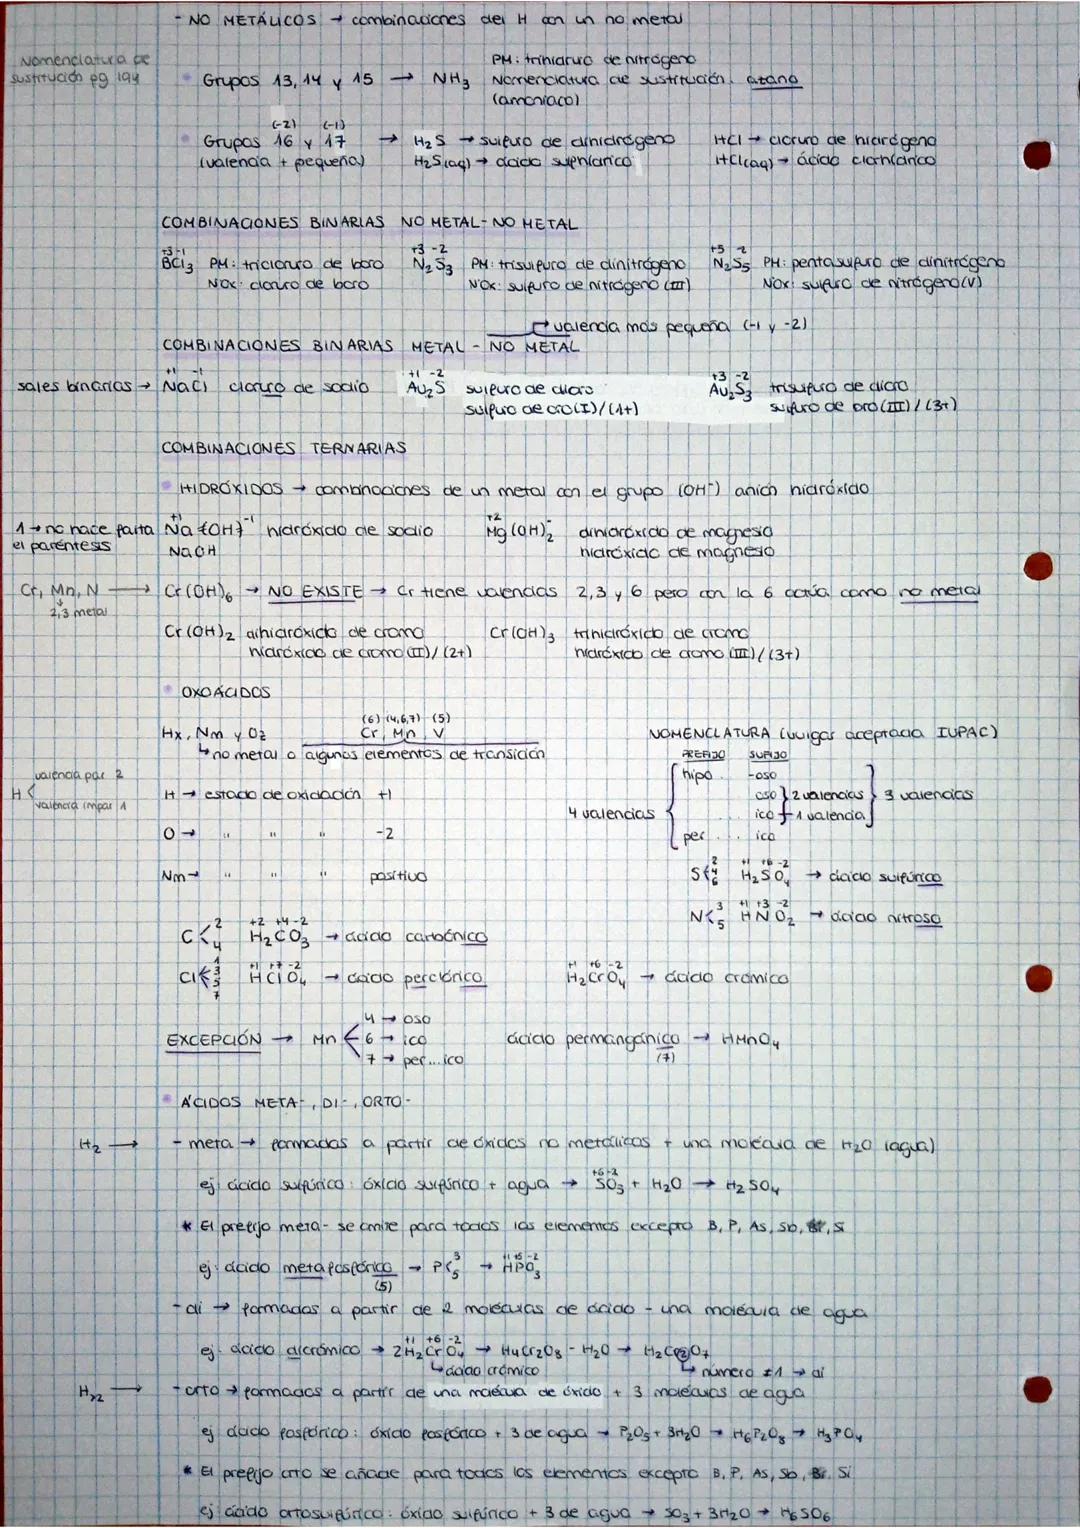 - NO METÁLICOS → combinaciones del H con un no metal
Nomenclatura de
sustitución pg 194
PM: trihidruro de nitrógeno
Grupos 13, 14 y 15 → NH3 Nomenclatura de sustitución: azano
(amoniaco)
(-2) (-1)
Grupos 16 y 17 → H2S → sulfuro de dihidrógeno HCl → cloruro de hidrógeno
(valencia + pequeña) H2S(aq) → ácido sulfhídrico HCl(aq) → ácido clorhídrico
COMBINACIONES BINARIAS NO METAL - NO METAL
+3 -1 +3 -2 +5 -2
BCl3 PM: tricloruro de boro N2S3 PM: trisulfuro de dinitrógeno N2S5 PM: pentasulfuro de dinitrógeno
NOx: cloruro de boro NOx: sulfuro de nitrógeno (III) NOx: sulfuro de nitrógeno (V)
→ valencia más pequeña (-1 y -2)
COMBINACIONES BINARIAS METAL - NO METAL
+1 -1 +1 -2 +3 -2
sales binarias → NaCl cloruro de sodio Au2S sulfuro de dioro Au2S3 trisulfuro de dioro
sulfuro de oro (I)/(1+) sulfuro de oro (III)/(3+)
COMBINACIONES TERNARIAS
• HIDRÓXIDOS → combinaciones de un metal con el grupo (OH-) anión hidróxido
+1 +2
1 → no hace falta Na (OH)-1 hidróxido de sodio Mg (OH)2- dihidróxido de magnesio
el paréntesis NaOH hidróxido de magnesio
Cr, Mn, N → Cr(OH)6 → NO EXISTE → Cr tiene valencias 2,3 y 6 pero con la 6 actúa como no metal
↓
2,3 metal
Cr(OH)2 dihidróxido de cromo Cr(OH)3 trihidróxido de cromo
hidróxido de cromo (II)/(2+) hidróxido de cromo (III)/(3+)
• OXOÁCIDOS
(6) (4,6,7) (5)
Hx, Nm y Oz Cr, Mn, V NOMENCLATURA (vulgar aceptada IUPAC)
↳ no metal o algunos elementos de transición PREFIJO SUFIJO
valencia par 2 hipo... -oso
H < H → estado de oxidación +1 oso } 2 valencias } 3 valencias
valencia impar 1 4 valencias ... ico } 1 valencia
O → " " " -2 per ... ico
Nm → " " " positivo
2 +1 +6 -2
S < 4 H2SO4 → ácido sulfúrico
6
3 +1 +3 -2
N < 5 HNO2 → ácido nitroso
2 +2 +4 -2
C < 4 H2CO3 → ácido carbónico
1 +1 +7 -2 +1 +6 -2
Cl < 3 HClO4 → ácido perclórico H2CrO4 → ácido crómico
5
7
4 → oso
EXCEPCIÓN → Mn < 6 → ico ácido permangánico → HMnO4
7 → per...ico (7)
• ÁCIDOS META-, DI-, ORTO-
H2 → - meta → formadas a partir de óxidos no metálicos + una molécula de H2O (agua)
+6 -2
ej: ácido sulfúrico: óxido sulfúrico + agua → SO3 + H2O → H2SO4
* El prefijo meta- se omite para todos los elementos excepto B, P, As, Sb, Si
3 +1 +5 -2
ej: ácido metafosfórico → P < 5 → HPO3
(5)
- di → formadas a partir de 2 moléculas de ácido - una molécula de agua
+1 +6 -2
ej: ácido dicrómico → 2H2CrO4 → H4Cr2O8 - H2O → H2Cr2O7
↳ ácido crómico ↳ número ≠1 → di
H>2 → - orto → formadas a partir de una molécula de óxido + 3 moléculas de agua
ej ácido fosfórico: óxido fosfórico + 3 de agua → P2O5 + 3H2O → H6P2O8 → H3PO4
* El prefijo orto se añade para todos los elementos excepto B, P, As, Sb, Si
ej ácido ortosulfúrico: óxido sulfúrico + 3 de agua → SO3 + 3H2O → H6SO6